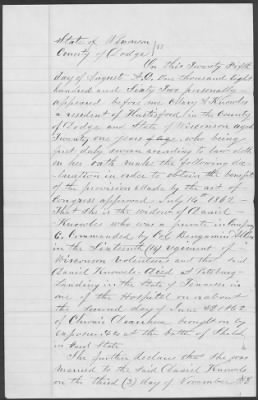 State of Wisconsin
County of Dodge } SS
On this Twenty Fifth
day of August A.D. One thousand Eight
hundred and Sixty Two personally
appeared before me Mary A Knowles
a resident of Hustisford in the County
of Dodge and State of Wisconsin aged
Twenty one years who being
first duly sworn according to law doth
on her oath make the following de
claration in order to obtain the benefit
of the provision made by the act of
Congress approved July 14th 1862 -
That she is the widow of Daniel
Knowles who was a private in Company
C. Commanded by Cpt Benjamin
in the Sixteenth (16) regiment of
Wisconsin Volunteers and the said
Daniel Knowles died at Pittsburg
Landing in the State of Tennessee in
one of the Hospital on or about
the second day of June AD 1862
of Chronic Diarrhea brought on by
exposure at the battle of Shiloh
in said State
She further declares that she was
married to the said Daniel Knowles
on the third (3) day of November